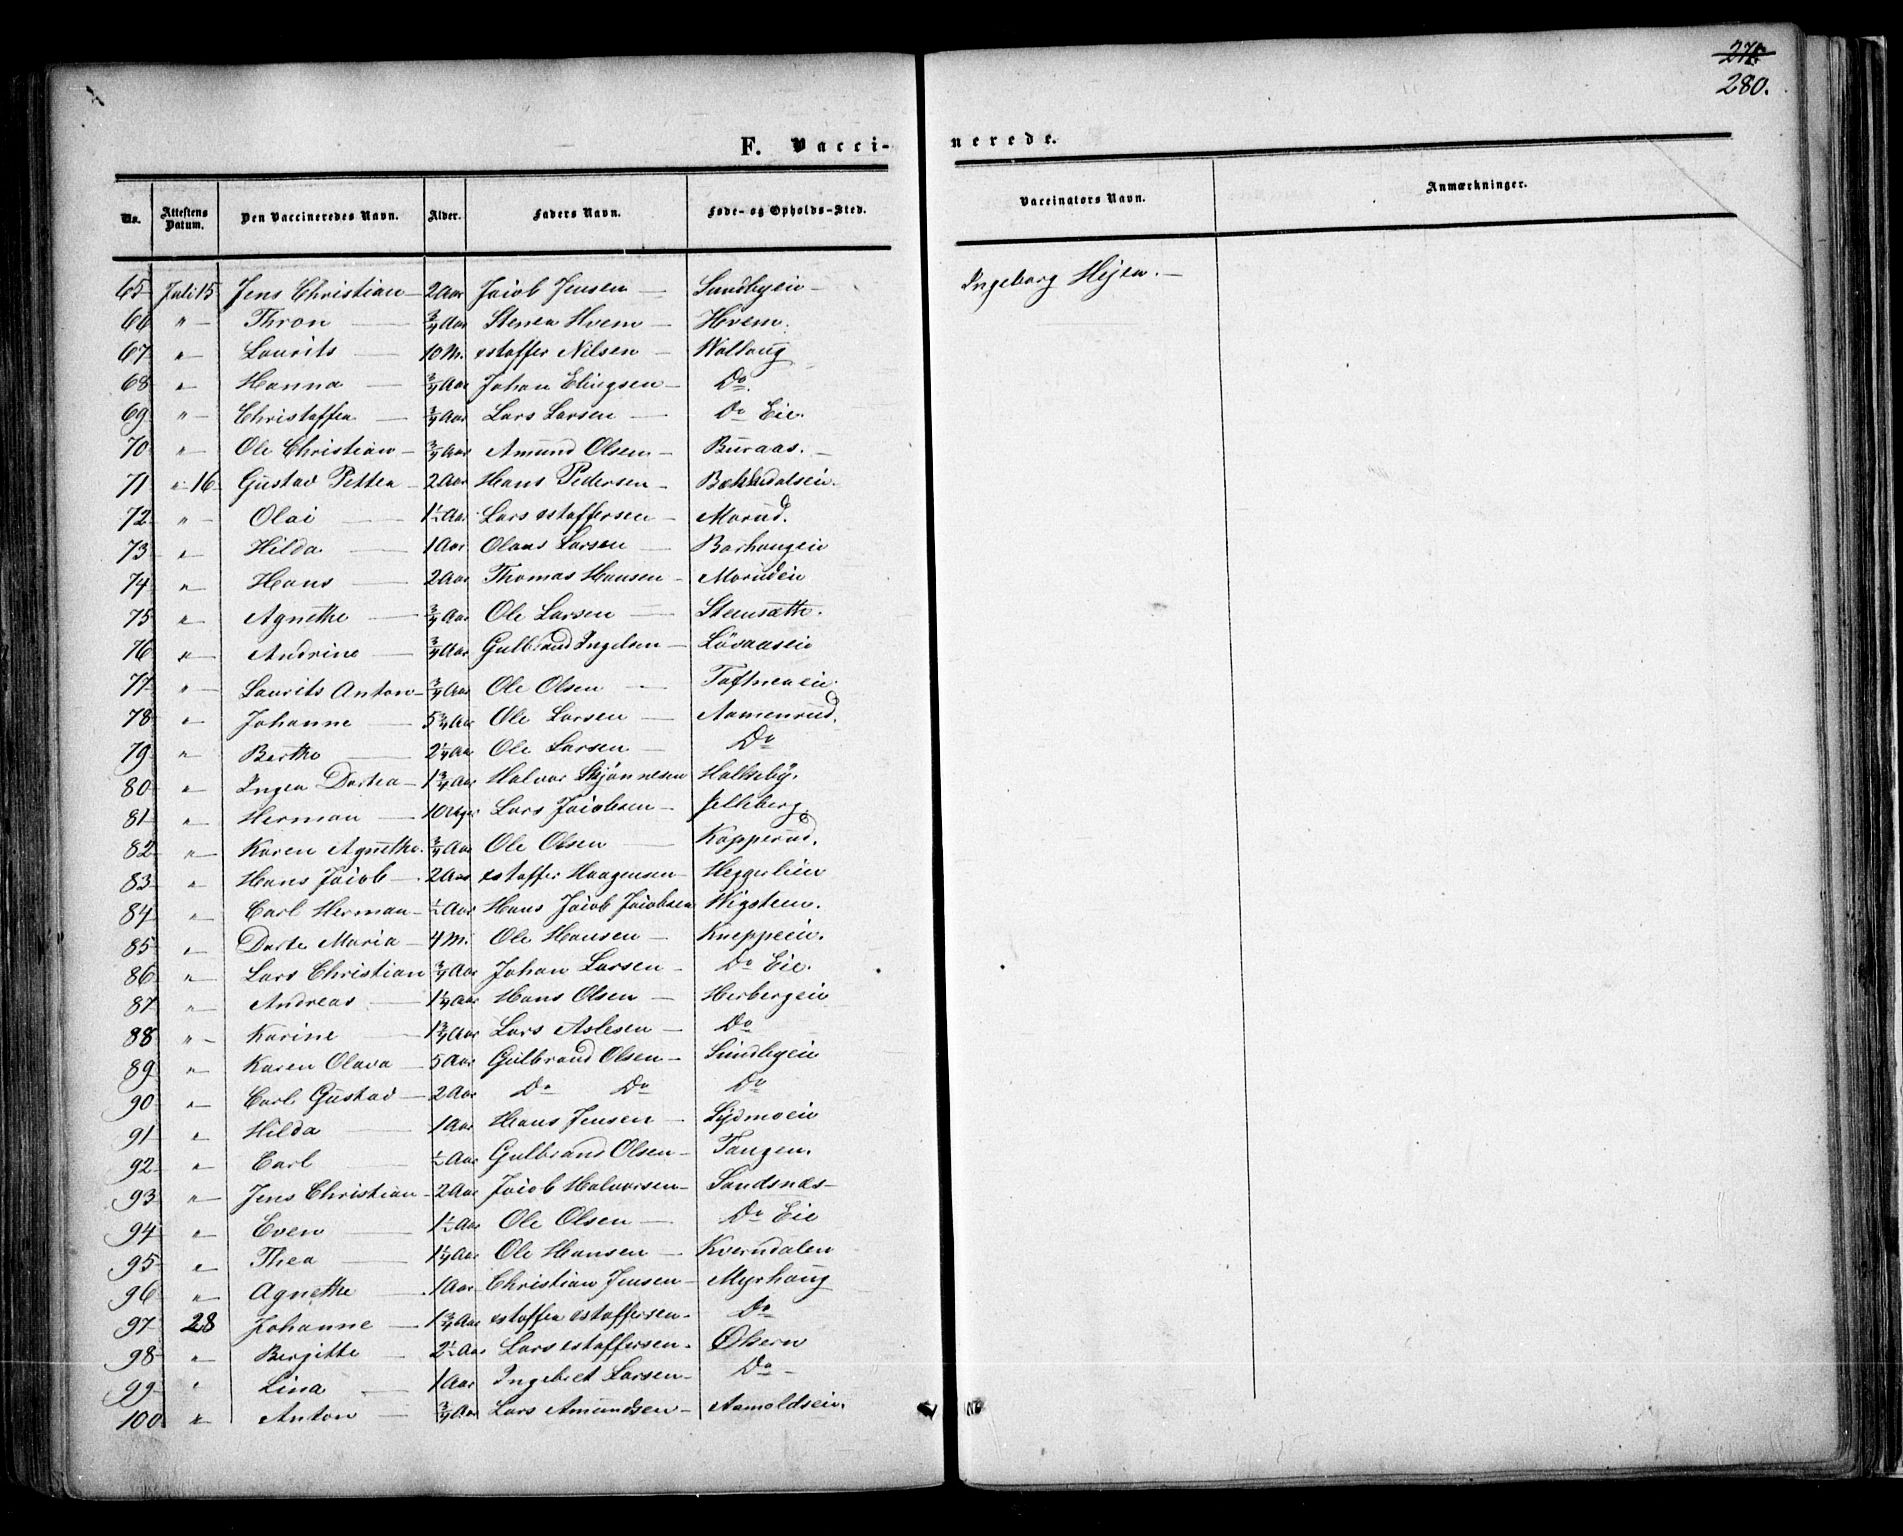 280.
F. Vacci-nerede.
No. Attestens Datum. Den Vaccineredes Navn. Alder. Faders Navn. Føde- og Opholds-Sted. Vaccinators Navn. Anmærkninger.
65 Juli 15 Jens Christian 2 Aar Jacob Jensen Sundbyeie Ingeborg
66 " Thron 3/4 Aar Stenea Hvem Hvem.
67 " Laurits 10 M. Nilsen
68 " Hanna 3/4 Aar Johan Elingsen Do.
69 " Christoffer 3/4 Aar Lars Larsen Do Eie.
70 " Ole Christian 3/4 Aar Amund Olsen Buraas.
71 " 16 Gustav Petter 2 Aar Hans Pedersen
72 " Olai 1 1/2 Aar Lars Morud.
73 " Hilda 1 Aar Olaus Larsen Barhaugeie
74 " Hans 2 Aar Thomas Hansen Morudeie
75 " Agnethe 3/4 Aar Ole Larsen Steensæth.
76 " Andrine 3/4 Aar Gulbrand Ingelsen Løvaaseie
77 " Laurits Anton 3/4 Aar Ole Olsen Toftnereie.
78 " Johanne 5 3/4 Aar Ole Larsen Aamenrud.
79 " Berthe 2 1/4 Aar Ole Larsen Do
80 " Inger Dortea 1 3/4 Aar Halvor Skjønnesen Halkeby.
81 " Herman 10 Lars Jacobsen
82 " Karen Agnethe. 3/4 Aar Ole Olsen Kopperud.
83 " Hans Jacob 2 Aar Haagensen Heggerleien
84 " Carl Herman 1/2 Aar Hans Jacob Jacobsen Wigstein.
85 " Dorte Maria 4 M. Ole Hansen Kneppeie.
86 " Lars Christian 3/4 Aar Johan Larsen Do Eie.
87 " Andreas 1 1/4 Aar Hans Olsen Herbergeie
88 " Karine 1 3/4 Aar Lars Aslesen Do
89 " Karen Olava 5 Aar Gulbrand Olsen Sundbyeie
90 " Carl Gustav 2 Aar Do Do Do
91 " Hilda 1 Aar Hans Jensen Lydmoeie
92 " Carl 1/2 Aar Gulbrand Olsen Tangen.
93 " Jens Christian 2 Aar Jacob Halvorsen Sandsnæs
94 " Even 1 1/2 Aar Ole Olsen Do Eie
95 " Thea 1 1/4 Aar Ole Hansen Kverndalen
96 " Agnethe 1 Aar Christian Jensen Myrhaug
97 28 Johanne 1 3/4 Aar Do
98 " Bergitte 2 1/2 Aar Lars
99 " Lina 1 Aar Ingebret Larsen Do
100 " Anton 3/4 Aar Lars Amundsen Aamoldseie.